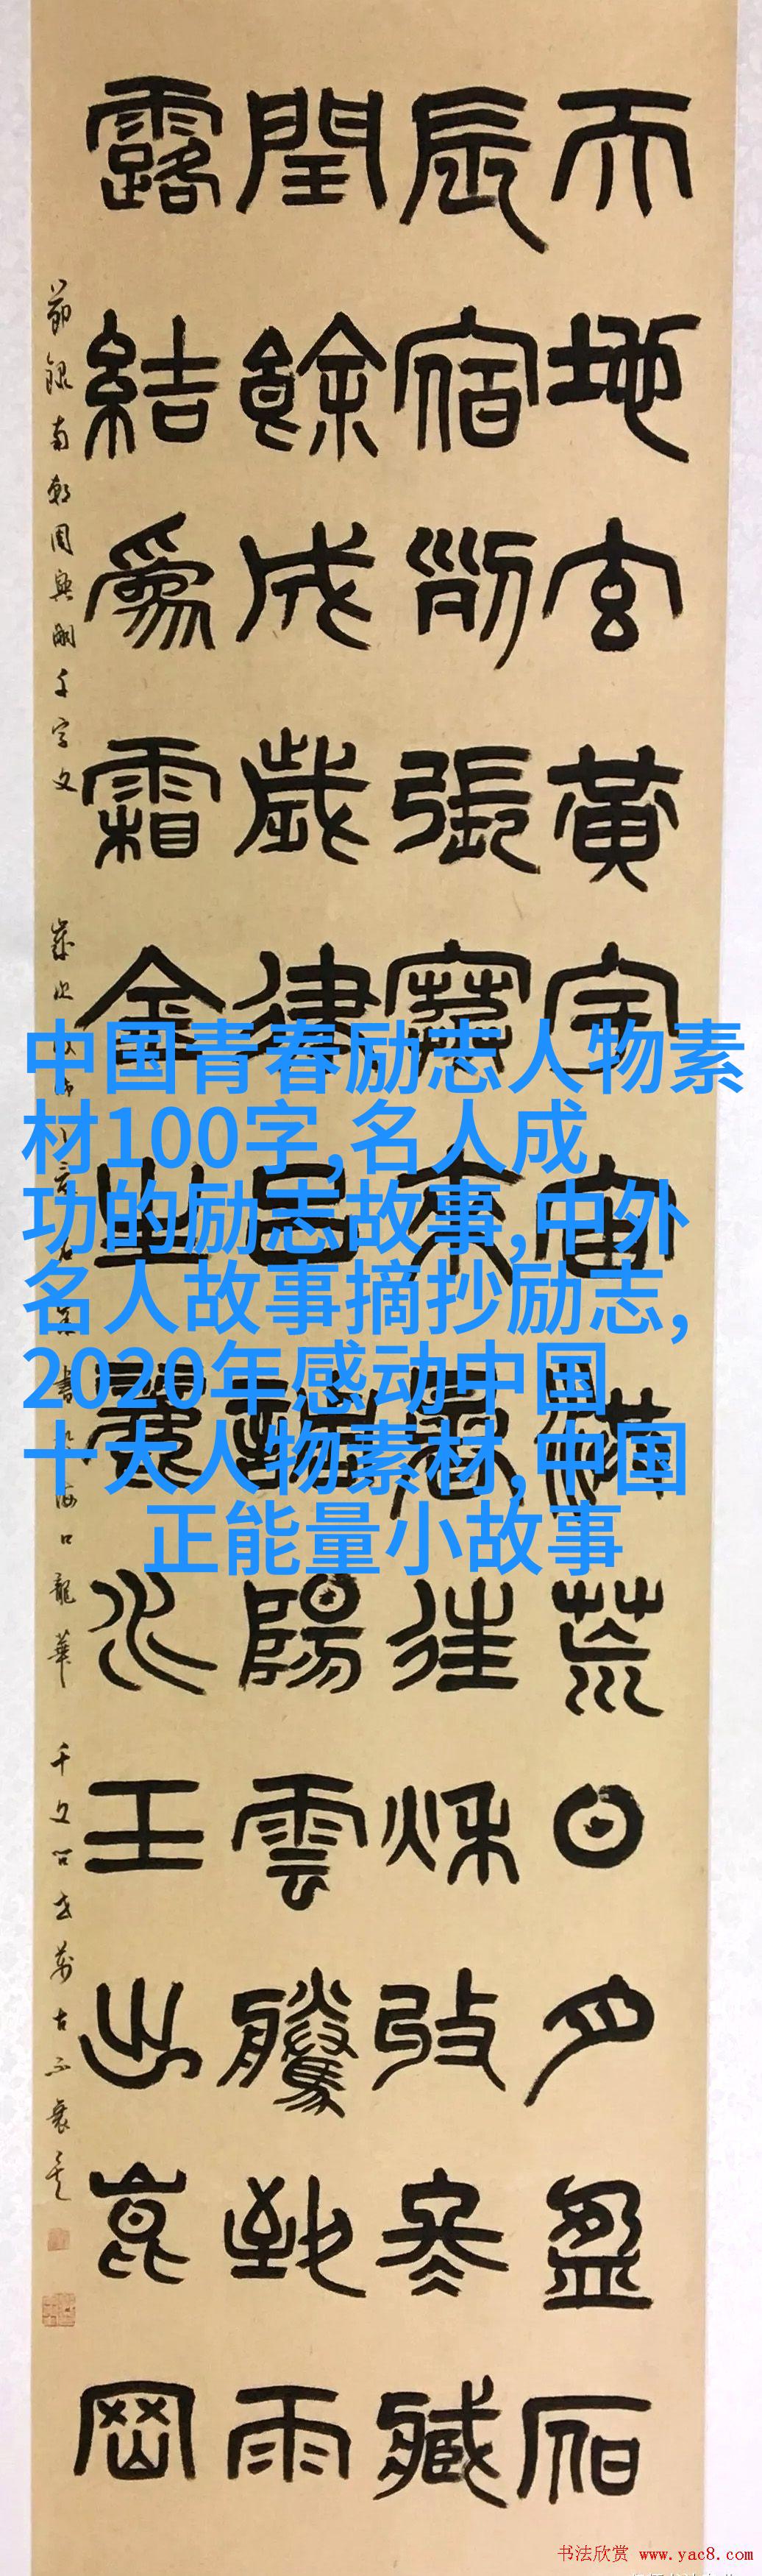 天地玄黃宇宙洪荒日月盈昃
辰宿列張寒來暑往秋收冬藏
閏餘成歲律呂調陽雲騰致雨
露結爲霜金生麗水玉出崑岡
節錄南朝周興嗣千字文
歲次 書於海口龍華
中国青春励志人物素
材100字,名人成
功的励志故事,中外
名人故事摘抄励志,
2020年感动中国
十大人物素材,中国
正能量小故事
书法欣赏 www.yac8.com